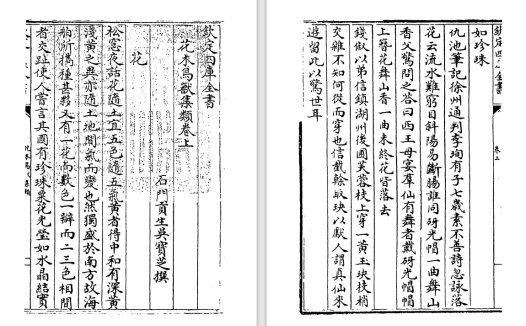 欽定四庫全書
花木鳥獸集類卷上
石門貢生吳寶芝撰
花
松窓夜話花隨土宜五色隨五氣黃者得中和有深黃
淺黃之異亦隨土地間氣而變也然獨盛於南方故海
舶所攜種甚夥又有一花而數色一瓣而二三色相間
者交趾使人嘗言其國有珍珠粟花光瑩如水晶結實
欽定四庫全書
卷上
如珍珠
仇池筆記徐州通判李珣有子七歲素不善詩忽詠落
花云流水難窮目斜陽易斷腸誰同砑光帽一曲舞山
香父驚問之答曰西王母宴羣仙有舞者戴砑光帽帽
上簪花舞山香一曲未終花皆落去
錢俶以弟信鎮湖州後圃芙蓉枝上穿一黃玉玦枝梢
交雜不知何從而穿也信截榦取玦以獻人謂真仙來
遊留此以驚世耳